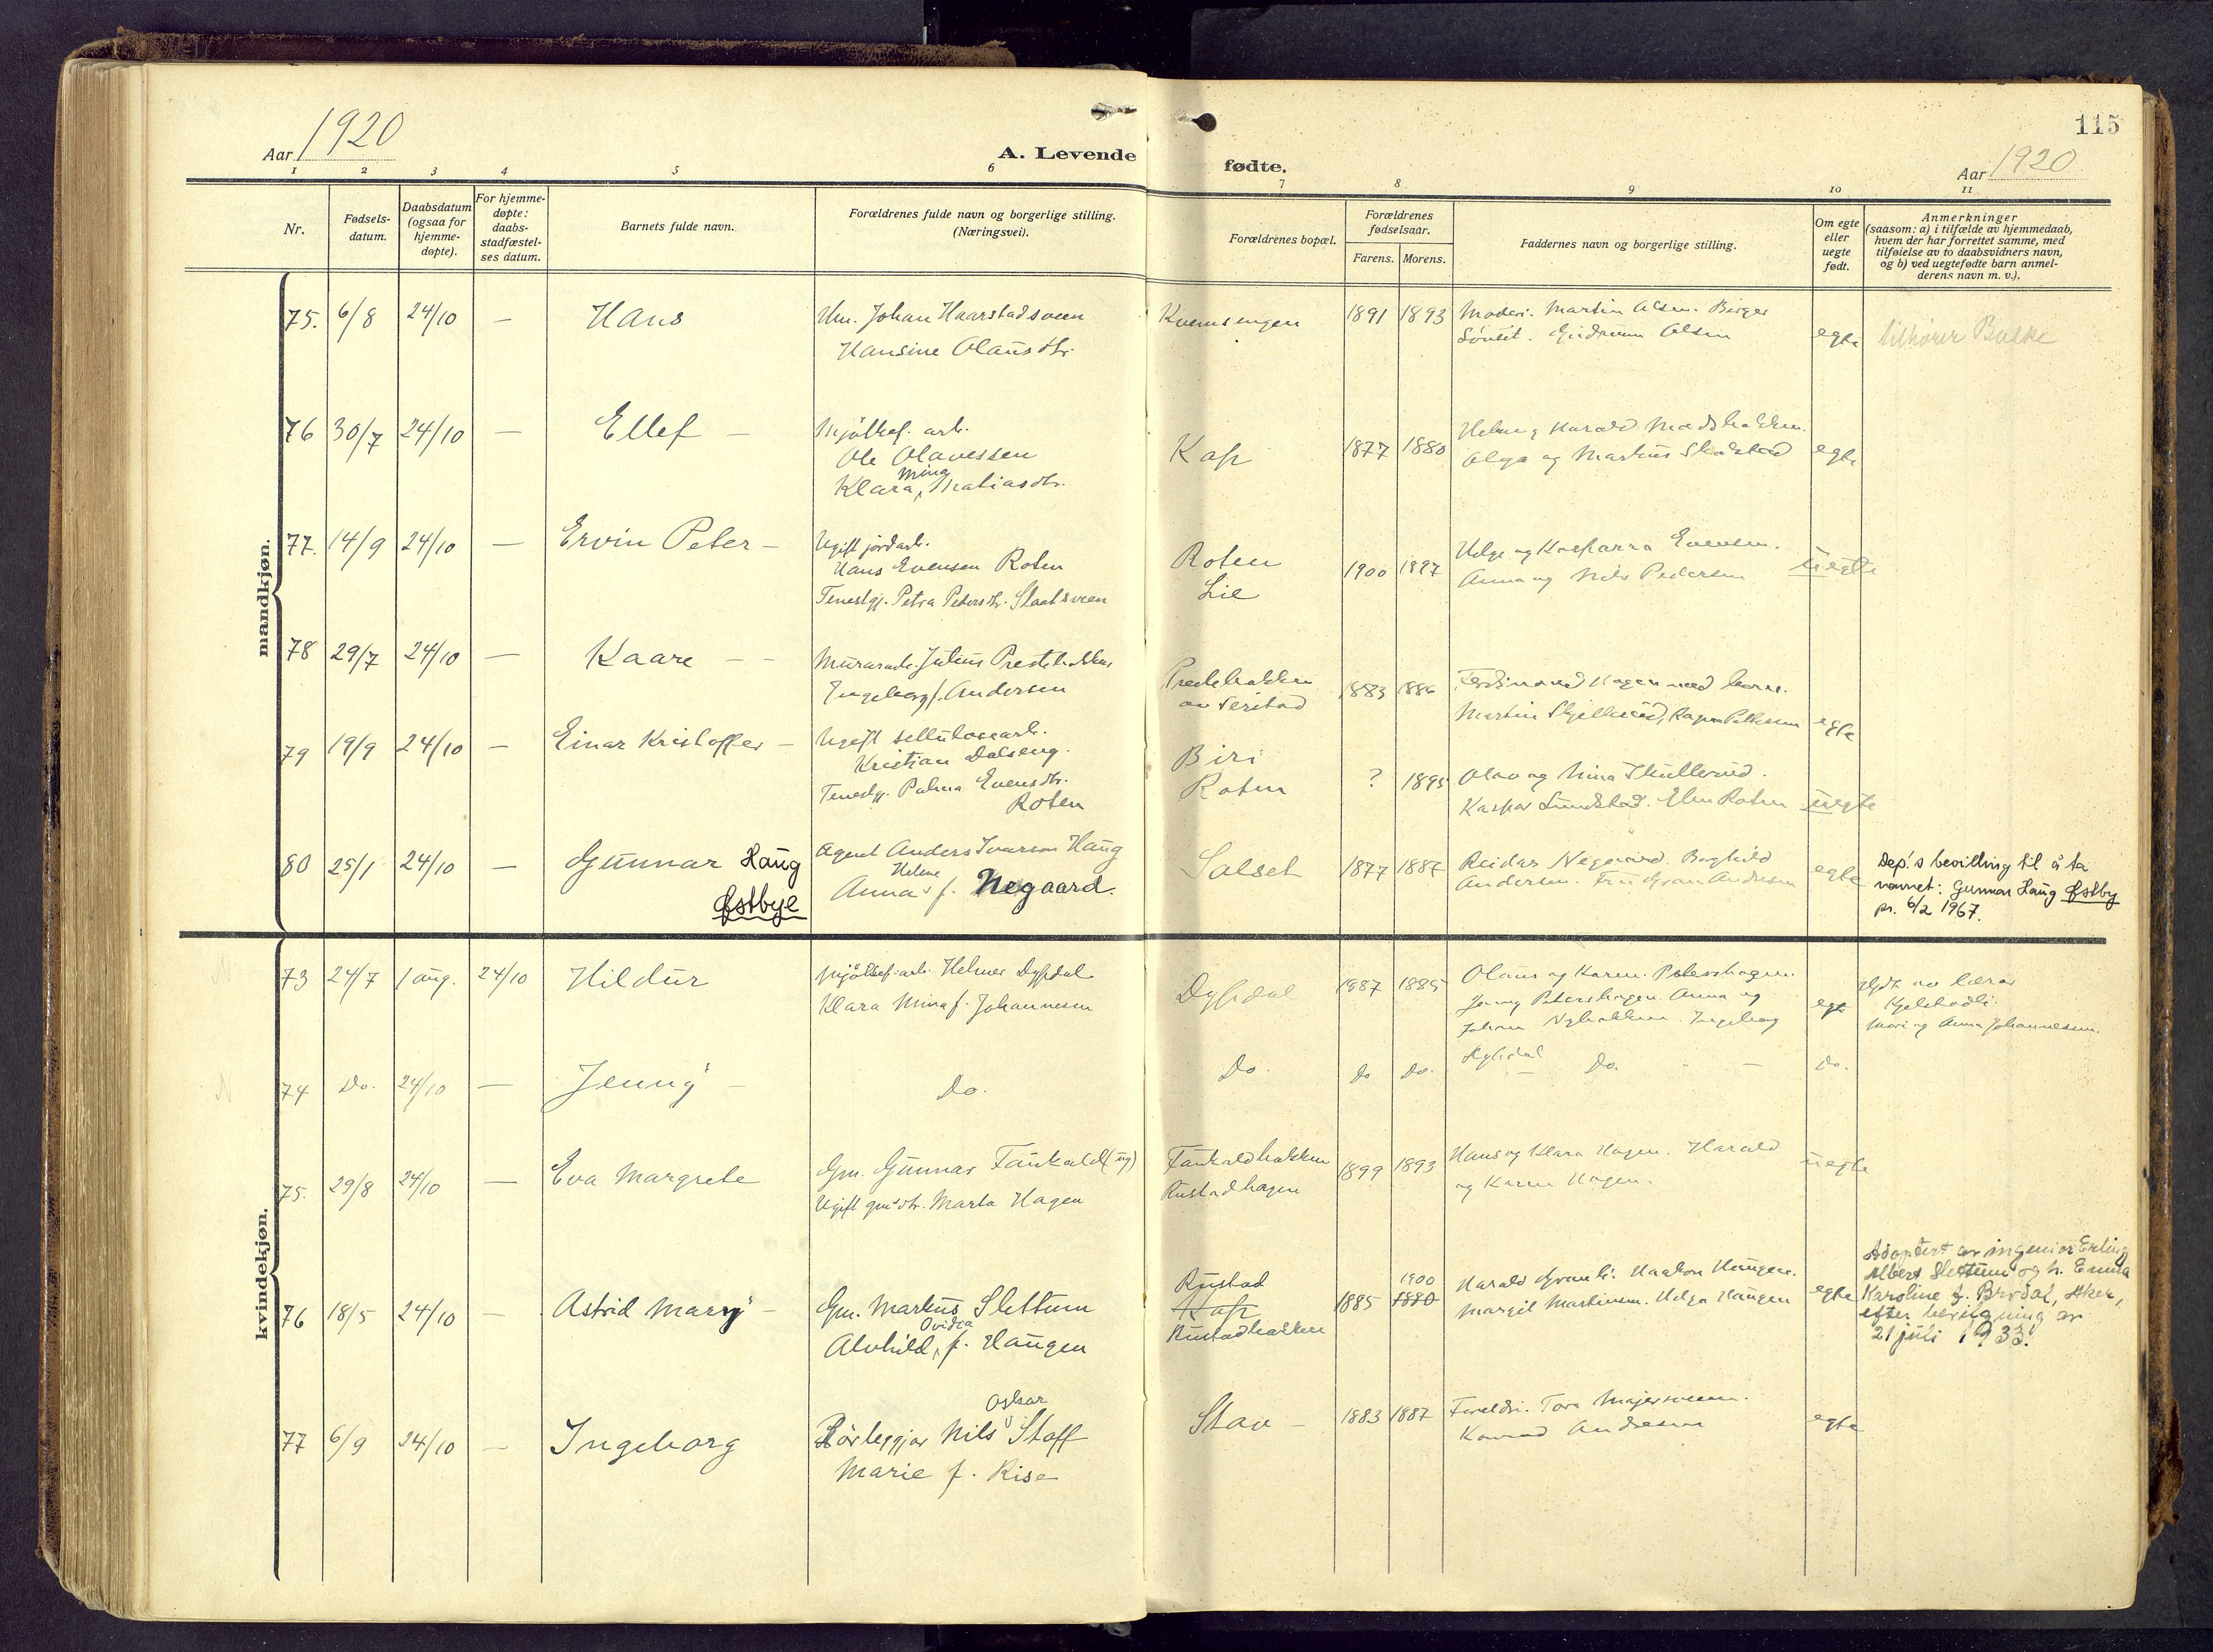 Aar 1920
A. Levende fødte.
115
Aar 1920
1 2 3 4 5 6 7 8 9 10 11
Nr.
Fødsels-
datum.
Daabsdatum
(ogsaa for
hjemme-
døpte).
For hjemme-
døpte:
daabs-
stadfæstel-
ses datum.
Barnets fulde navn.
Forældrenes fulde navn og borgerlige stilling.
(Næringsvei).
Forældrenes bopæl.
Forældrenes
fødselsaar.
Farens. Morens.
Faddernes navn og borgerlige stilling.
Om egte
eller
uegte
født.
Anmerkninger
(saasom: a) i tilfælde av hjemmedaab,
hvem der har forrettet samme, med
tilføielse av to daabsvidners navn,
og b) ved uegtefødte barn anmel-
derens navn m. v.).
mandkjøn.
75. 6/8 24/10 — Hans
Um. Johan Haarstadsveen
Hansine Olausdtr.
Kvemsengen 1891 1893
Moderi. Martin Olsen. Birger
Gudrun Olsen
egte
tilhører Baske
76 30/7 24/10 — Ellef —
Mjölkef. arb.
Ole Olavessen
Mina
Klara, Matiasdtr.
Kap 1877 1880
Helene og Harald Madsbakken.
Olga og Markus Skolstad
egte
77. 14/9 24/10 — Ervin Peter —
Ugift jordarb.
Hans Evensen Roten
Tenestgj. Petra Petersdtr. Slaatsveen
Roten
Lie
1900 1897
Helge og Kasparra Evensen.
Anna og Nils Pedersen
uegte
78 29/7 24/10 — Kaare — —
Murararb. Julius Prestebakken
Ingeborg f. Andersen
Prestebakken
av Seristad
1883 1886
Ferdinand Hagen med kone.
Martin Skjellerud, Ragna Pettersen
egte
79 19/9 24/10 — Einar Kristoffer —
Ugift sellulosearb.
Kristian Dalseng.
Tenestgj. Palma Evensdtr.
Roten
Biri
Roten
? 1895
Olav og Nina Skullerud.
Kaspar Lundstad. Elen Roten
uegte
80 25/1 24/10 — Gunnar Haug
Østbye
Agent Anders Ivarson Haug
Helene
Anna f. Negaard.
Salset 1877 1887
Reidar Negaard. Borghild
Andersen. Fru Gran Andersen
egte
Dep.'s bevilling til å ta
navnet: Gunnar Haug Østby
pr. 6/2 1967.
kvindekjøn.
73 24/7 1 aug. 24/10 Hildur
Mjölkef. arb. Helmer Dypdal
Klara Mina f. Johannesen
Dypdal 1887 1885
Olaus og Karen Petershagen.
Jenny Petershagen. Anna og
Johan Nybakken. Ingeborg
Dypdal
egte
Hjdt. av lærar
Kjelstadli.
Mari og Anna Johannessen.
74 Do. 24/10 — Jenny —
Do.
Do. Do Do. — Do. — Do.
75. 29/8 24/10 — Eva Margrete
Gm. Gunnar Faukald (ug)
Ugift gmsdtr. Marta Hagen
Faukaldbakken
Rustadhagen
1899 1893
Hans og Klara Hagen. Harald
og Karen Hagen.
uegte
76 18/5 24/10 — Astrid Mary —
Gm. Markus Slettum
Ovidia
Alvhild, f. Haugen
Rustad
Kap
Rustadbakken
1885 1900
1880
Harald Granli. Haakon Haugen.
Margit Martinsen. Helga Haugen
egte
Adoptert av ingeniør Erling
Albert Slettum og h. Emma
Karoline f. Brodal, Aker,
efter bevilgning av
21 juli 1933.
77 6/9 24/10 — Ingeborg
Oskar
Rörleggjar Nils Staff
Marie f. Rise
Stav — 1883 1887
Foreldri. Tora Majersveen.
Konrad Andresen
egte